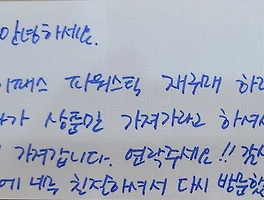 안녕하세요.
이때스 파워스틱 재구매 하러
가 상품만 가져가라고 하셔서
가져갑니다. 연락주세요!! 감사
에 너무 친절하셔서 다시 방문했